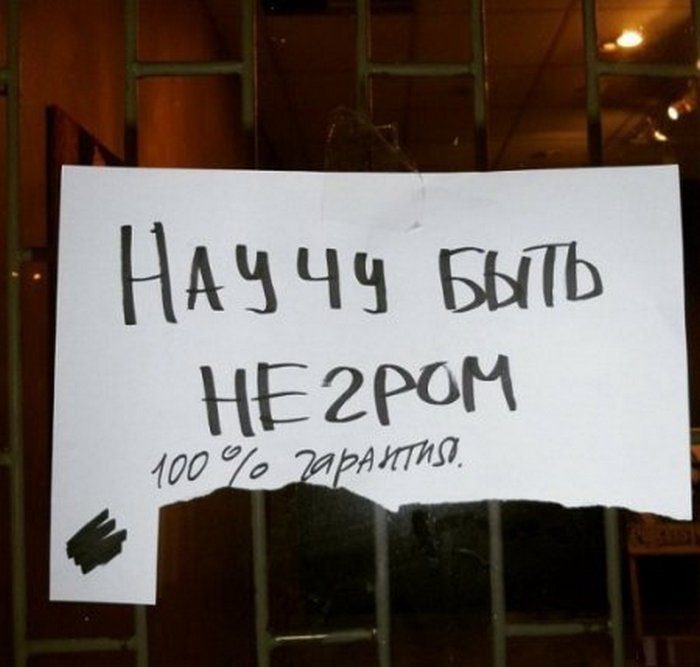 Научу быть
негром
100% гарантия.